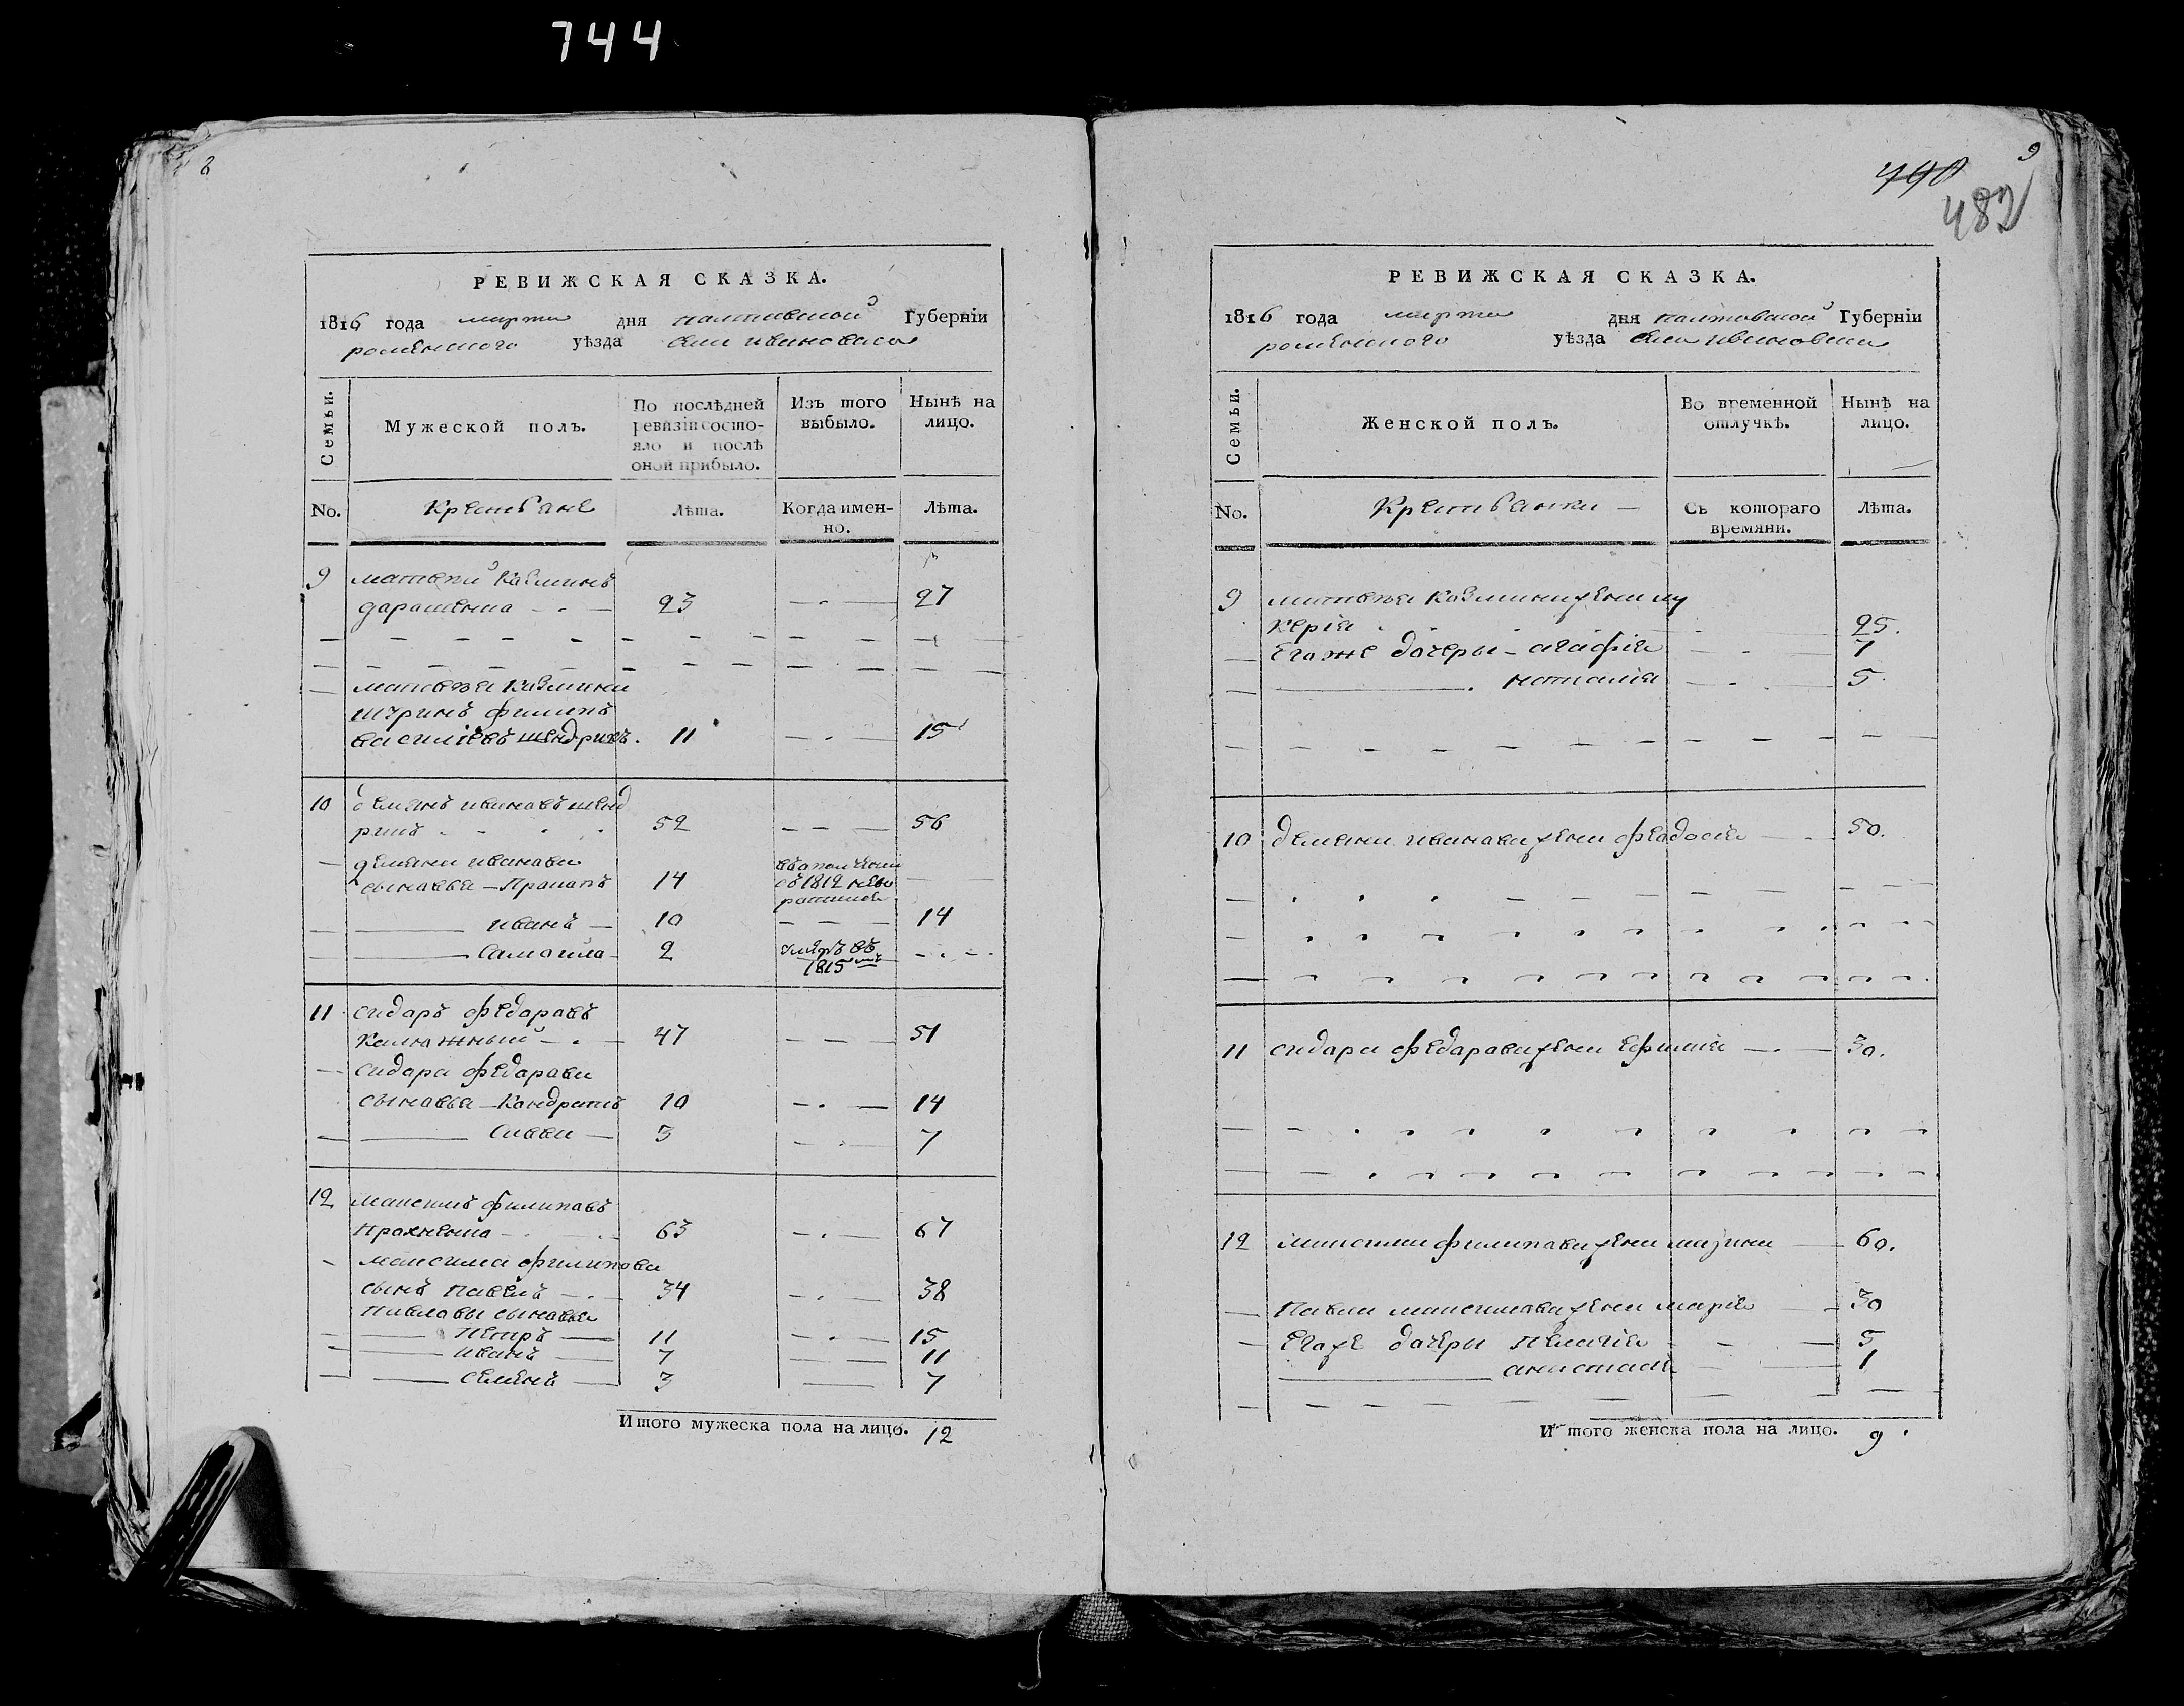 744
8
РЕВИЖСКАЯ СКАЗКА.
1816 года марта дня полтавской Губернїи
роменского уѣзда села ивановска
Семьи.
Мужеской полъ.
По послѣдней ревизїи состояло и послѣ оной прибыло.
Изъ того выбыло.
Нынѣ на лицо.
No.
Крестьяне
Лѣта.
Когда именно.
Лѣта.
9 матвѣй Казминъ
дарашенка 23 27
матвѣя Казмина
шуринъ филипъ
василіевъ шендрикъ. 11 15
10 демянъ ивановъ шенд
рикъ 52 56
демяна иванова
сыновья — Пракапъ 14
въ 1812
иванъ — 10 14
Самойла 2 умре въ
1815
11 сидаръ федаравъ
Калюжный 47 51
сидара федарава
сынавья — Кандратъ 10 14
савва — 3 7
12 максимъ филипавъ
Прахненка 63 67
максима филипова
сынъ павелъ 34 38
павлавы сынавья
петръ 11 15
иванъ 7 11
семенъ 3 7
Итого мужеска пола на лицо. 12
9
490
482
РЕВИЖСКАЯ СКАЗКА.
1816 года марта дня полтовской Губернїи
роменского уѣзда села ивановска
Семьи.
Женской полъ.
Во временной отлучкѣ.
Нынѣ на лицо.
No.
Крестьянки
Съ котораго времяни.
Лѣта.
9 матвѣя Казмина жена лу
керія 25.
его же дочеры — агафія 7
наталія 5
10 демяна иванава жена феадосія 50.
11 сидара федарава жена Ефимія 30.
12 максима филипава жена марина 60.
Павла максимава жена марія 30
его же дочеры пелагія 5
анастасія 1
Итого женска пола на лицо. 9